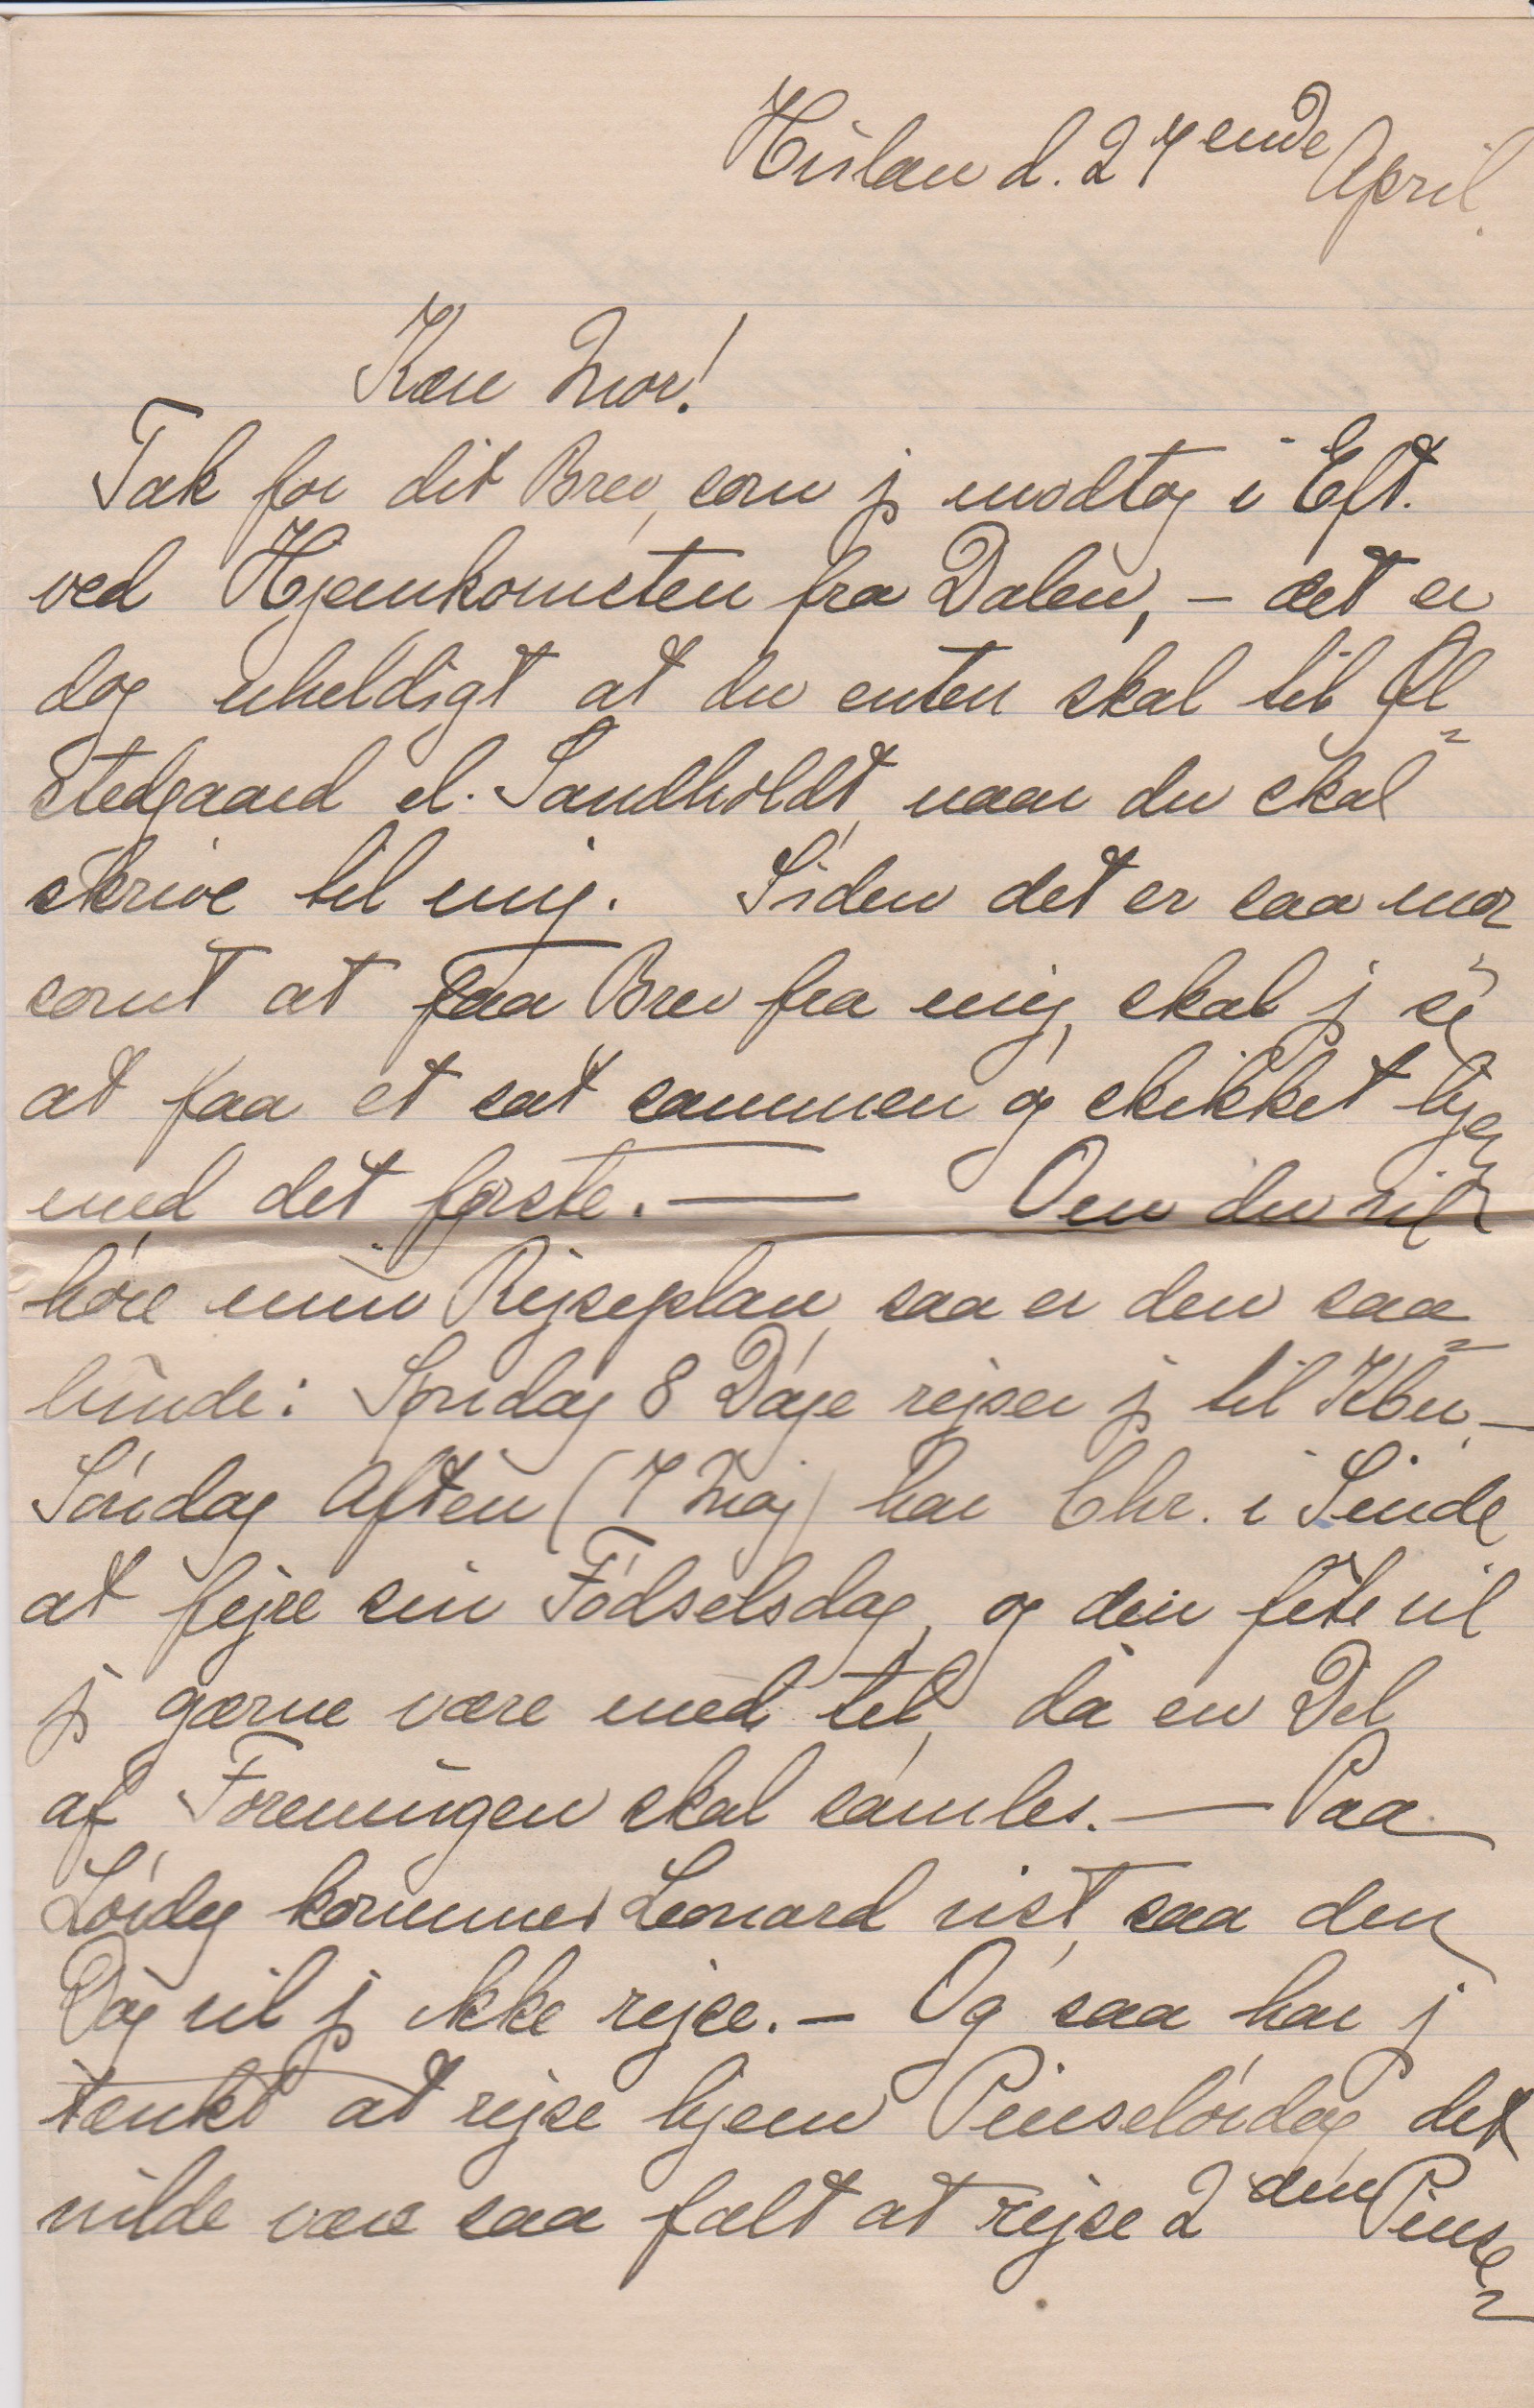 Hislau d. 27ende April.
Kære Mor!
Tak for dit Brev, som j modtog i Eft.
ved Hjemkomsten fra Dalen, – det er
dog uheldigt at du enten skal til Øl=
stedgaard el. Sandholdt, naar du skal
skrive til mig. Siden det er saa mor
somt at faa Brev fra mig, skal j se
at faa et sat sammen og skikket hjem
med det første. — Om du vil
høre min Rejseplan, saa er den saa=
lunde: Søndag 8 Dage rejser j til Kbn. –
Søndag Aften (7 Maj) har Chr. i Sinde
at fejre sin Fødselsdag, og den fête vil
j gærne være med til, da en Del
af Foreningen skal samles. — Paa
Lørdag kommer Leonard vist, saa den
Dag vil j ikke rejse. – Og saa har j
tænkt at rejse hjem Pinselørdag, det
vilde være saa fælt at rejse 2den Pinse=